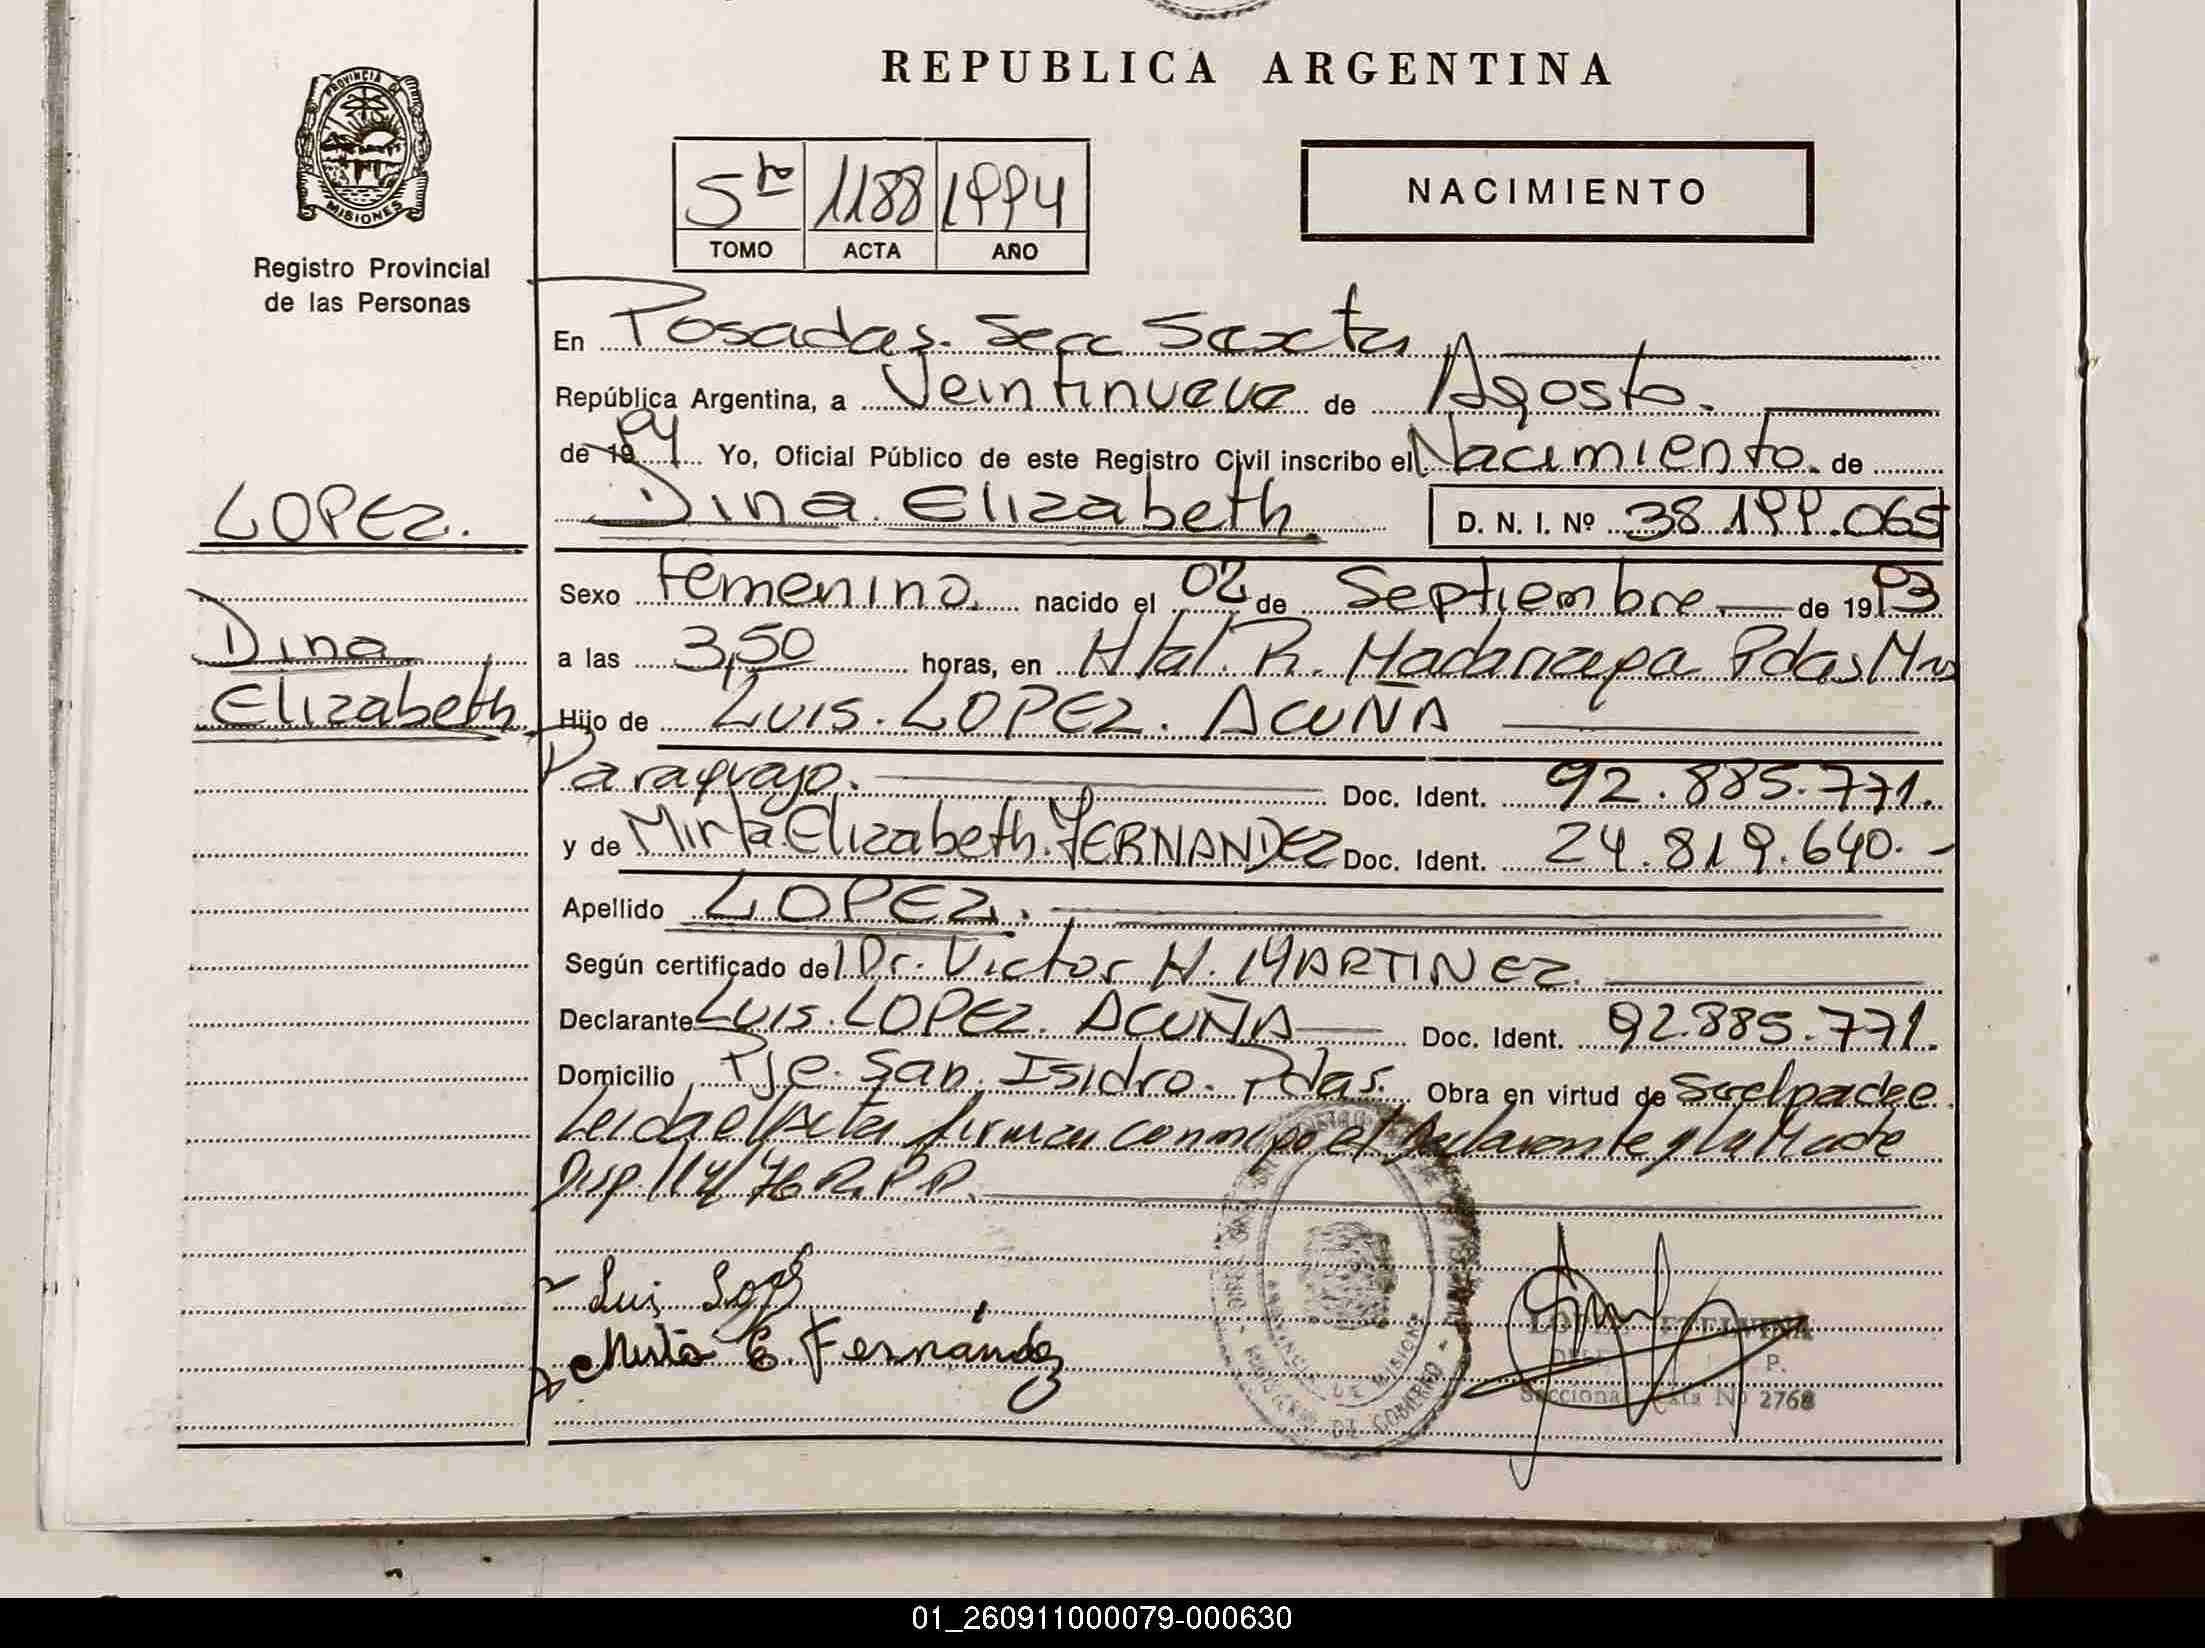 REPUBLICA ARGENTINA
PROVINCIA DE MISIONES
Registro Provincial
de las Personas
5to 1188 1994
TOMO ACTA AÑO
NACIMIENTO
En Posadas. Secc Sexta
República Argentina, a Veintinueve de Agosto.
de 1994 Yo, Oficial Público de este Registro Civil inscribo el Nacimiento. de
Dina Elizabeth D. N. I. Nº 38.199.065
LOPEZ.
Dina
Elizabeth
Sexo Femenino. nacido el 02 de Septiembre. de 1993
a las 3,50 horas, en Htal. R. Madariaga Pdas Mns
Hijo de Luis. LOPEZ. ACUÑA
Paraguayo. Doc. Ident. 92.885.771.
y de Mirta Elizabeth. FERNANDEZ Doc. Ident. 24.819.640.-
Apellido LOPEZ.
Según certificado del Dr. Victor H. MARTINEZ.
Declarante Luis. LOPEZ. ACUÑA Doc. Ident. 92.885.771.
Domicilio Pje. San. Isidro. Pdas. Obra en virtud de
Leida el Acta firman conmigo el Declarante y la Madre
Disp. 114/76 R.P.P.
Luis Lopez
Mirta E. Fernandez
PROVINCIA DE MISIONES
DE GOBIERNO
Nº 2768
01_260911000079-000630